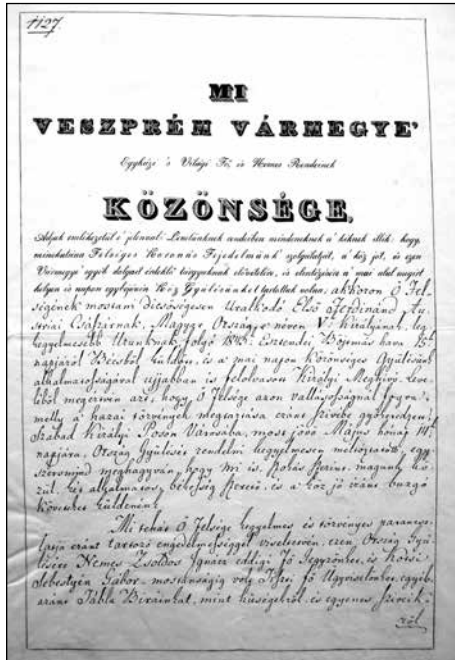 1127.
MI
VESZPRÉM VÁRMEGYE'
Egyházi 's Világi Fő, és Nemes Rendeinek
KÖZÖNSÉGE,
Adjuk emlékezetül e' jelenvaló Levelünknek rendiben mindeneknek a' kiknek illik: hogy,
minekutánna Felséges Koronás Fejedelmünk szolgálatját, a' köz jót, és ezen
Vármegye' egyéb dolgait érdeklő tárgyaknak elővételére, és elintézésére a' mai alul megirt
helyen és napon egybejövén Köz Gyűlésünket tartottuk volna; akkoron Ő Fel-
ségének mostani dicsőségesen Uralkodó Első Ferdinand Au-
striai Császárnak, Magyar Ország e néven V. Királyának, leg
kegyelmesebb Urunknak folyó 1843. Esztendei Böjtmás hava
napjáról Bécsből küldött, és a' mai napon közönséges Gyűlésünk
alkalmatosságával ujjabban is felolvasott Királyi Meghivó leve-
léből megértvén azt, hogy Ő Felsége azon
melly a' hazai törvények megtartása eránt szivébe gyökeredzett,
Szabad Királyi Posony Városába, most jövő Május hónap 14
napjára, Ország Gyűlését rendelni kegyelmesen méltóztatott, egy
szersmind meghagyván, hogy mi is, magunk
két alkalmatos, békesség és a' köz jó iránt buzgó
Követet küldenénk
Mi tehát Ő Felsége kegyelmes és törvényes parancso-
latja eránt tartozó engedelmességgel viseltetvén, ezen Ország Gyű-
lésére Nemes Zsoldos Ignácz eddigi Fő Jegyzőnket, és
Sebestyén Gábor mostanságig volt Fő Ügyviselőnket, egyéb-
aránt Tábla Biráinkat, mint hűségekről, és egyenes szivek-
ről